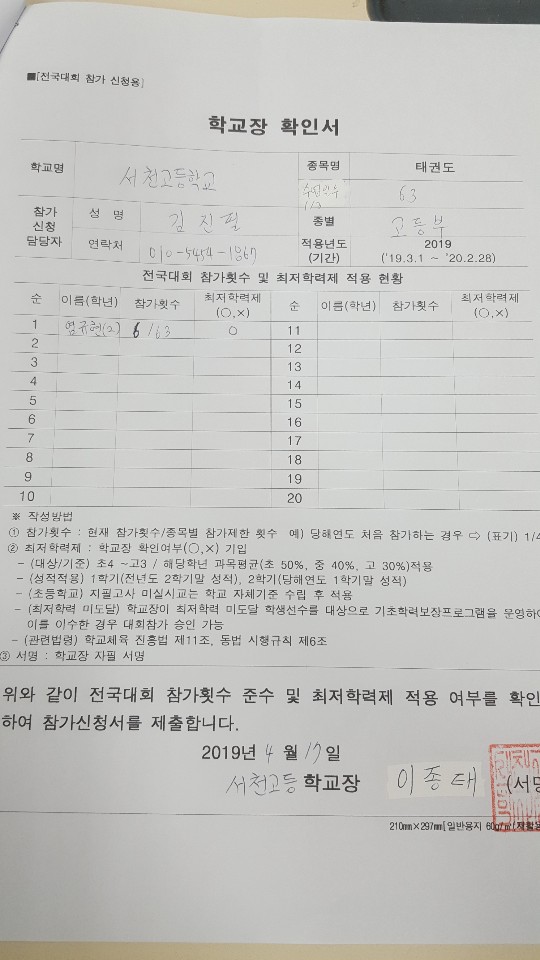 ■[전국대회 참가 신청용]
학교장 확인서
학교명 서천고등학교 종목명 태권도
63
참가 신청 담당자 성 명 김진필 종별 고등부
연락처 010-5454-1867 적용년도 (기간) 2019 ('19.3.1 ~ '20.2.28)
전국대회 참가횟수 및 최저학력제 적용 현황
순 이름(학년) 참가횟수 최저학력제 (○,×) 순 이름(학년) 참가횟수 최저학력제 (○,×)
1 염규헌(2) 6/63 ○ 11
2 12
3 13
4 14
5 15
6 16
7 17
8 18
9 19
10 20
※ 작성방법
① 참가횟수 : 현재 참가횟수/종목별 참가제한 횟수 예) 당해연도 처음 참가하는 경우 ⇨ (표기) 1/4
② 최저학력제 : 학교장 확인여부(○,×) 기입
- (대상/기준) 초4 ~고3 / 해당학년 과목평균(초 50%, 중 40%, 고 30%)적용
- (성적적용) 1학기(전년도 2학기말 성적), 2학기(당해연도 1학기말 성적)
- (초등학교) 지필고사 미실시교는 학교 자체기준 수립 후 적용
- (최저학력 미도달) 학교장이 최저학력 미도달 학생선수를 대상으로 기초학력보장프로그램을 운영하여
이를 이수한 경우 대회참가 승인 가능
- (관련법령) 학교체육 진흥법 제11조, 동법 시행규칙 제6조
③ 서명 : 학교장 자필 서명
위와 같이 전국대회 참가횟수 준수 및 최저학력제 적용 여부를 확인
하여 참가신청서를 제출합니다.
2019년 4월 17일
서천고등 학교장 이종태 (서명
210㎜×297㎜[일반용지 60g/㎡(재활용